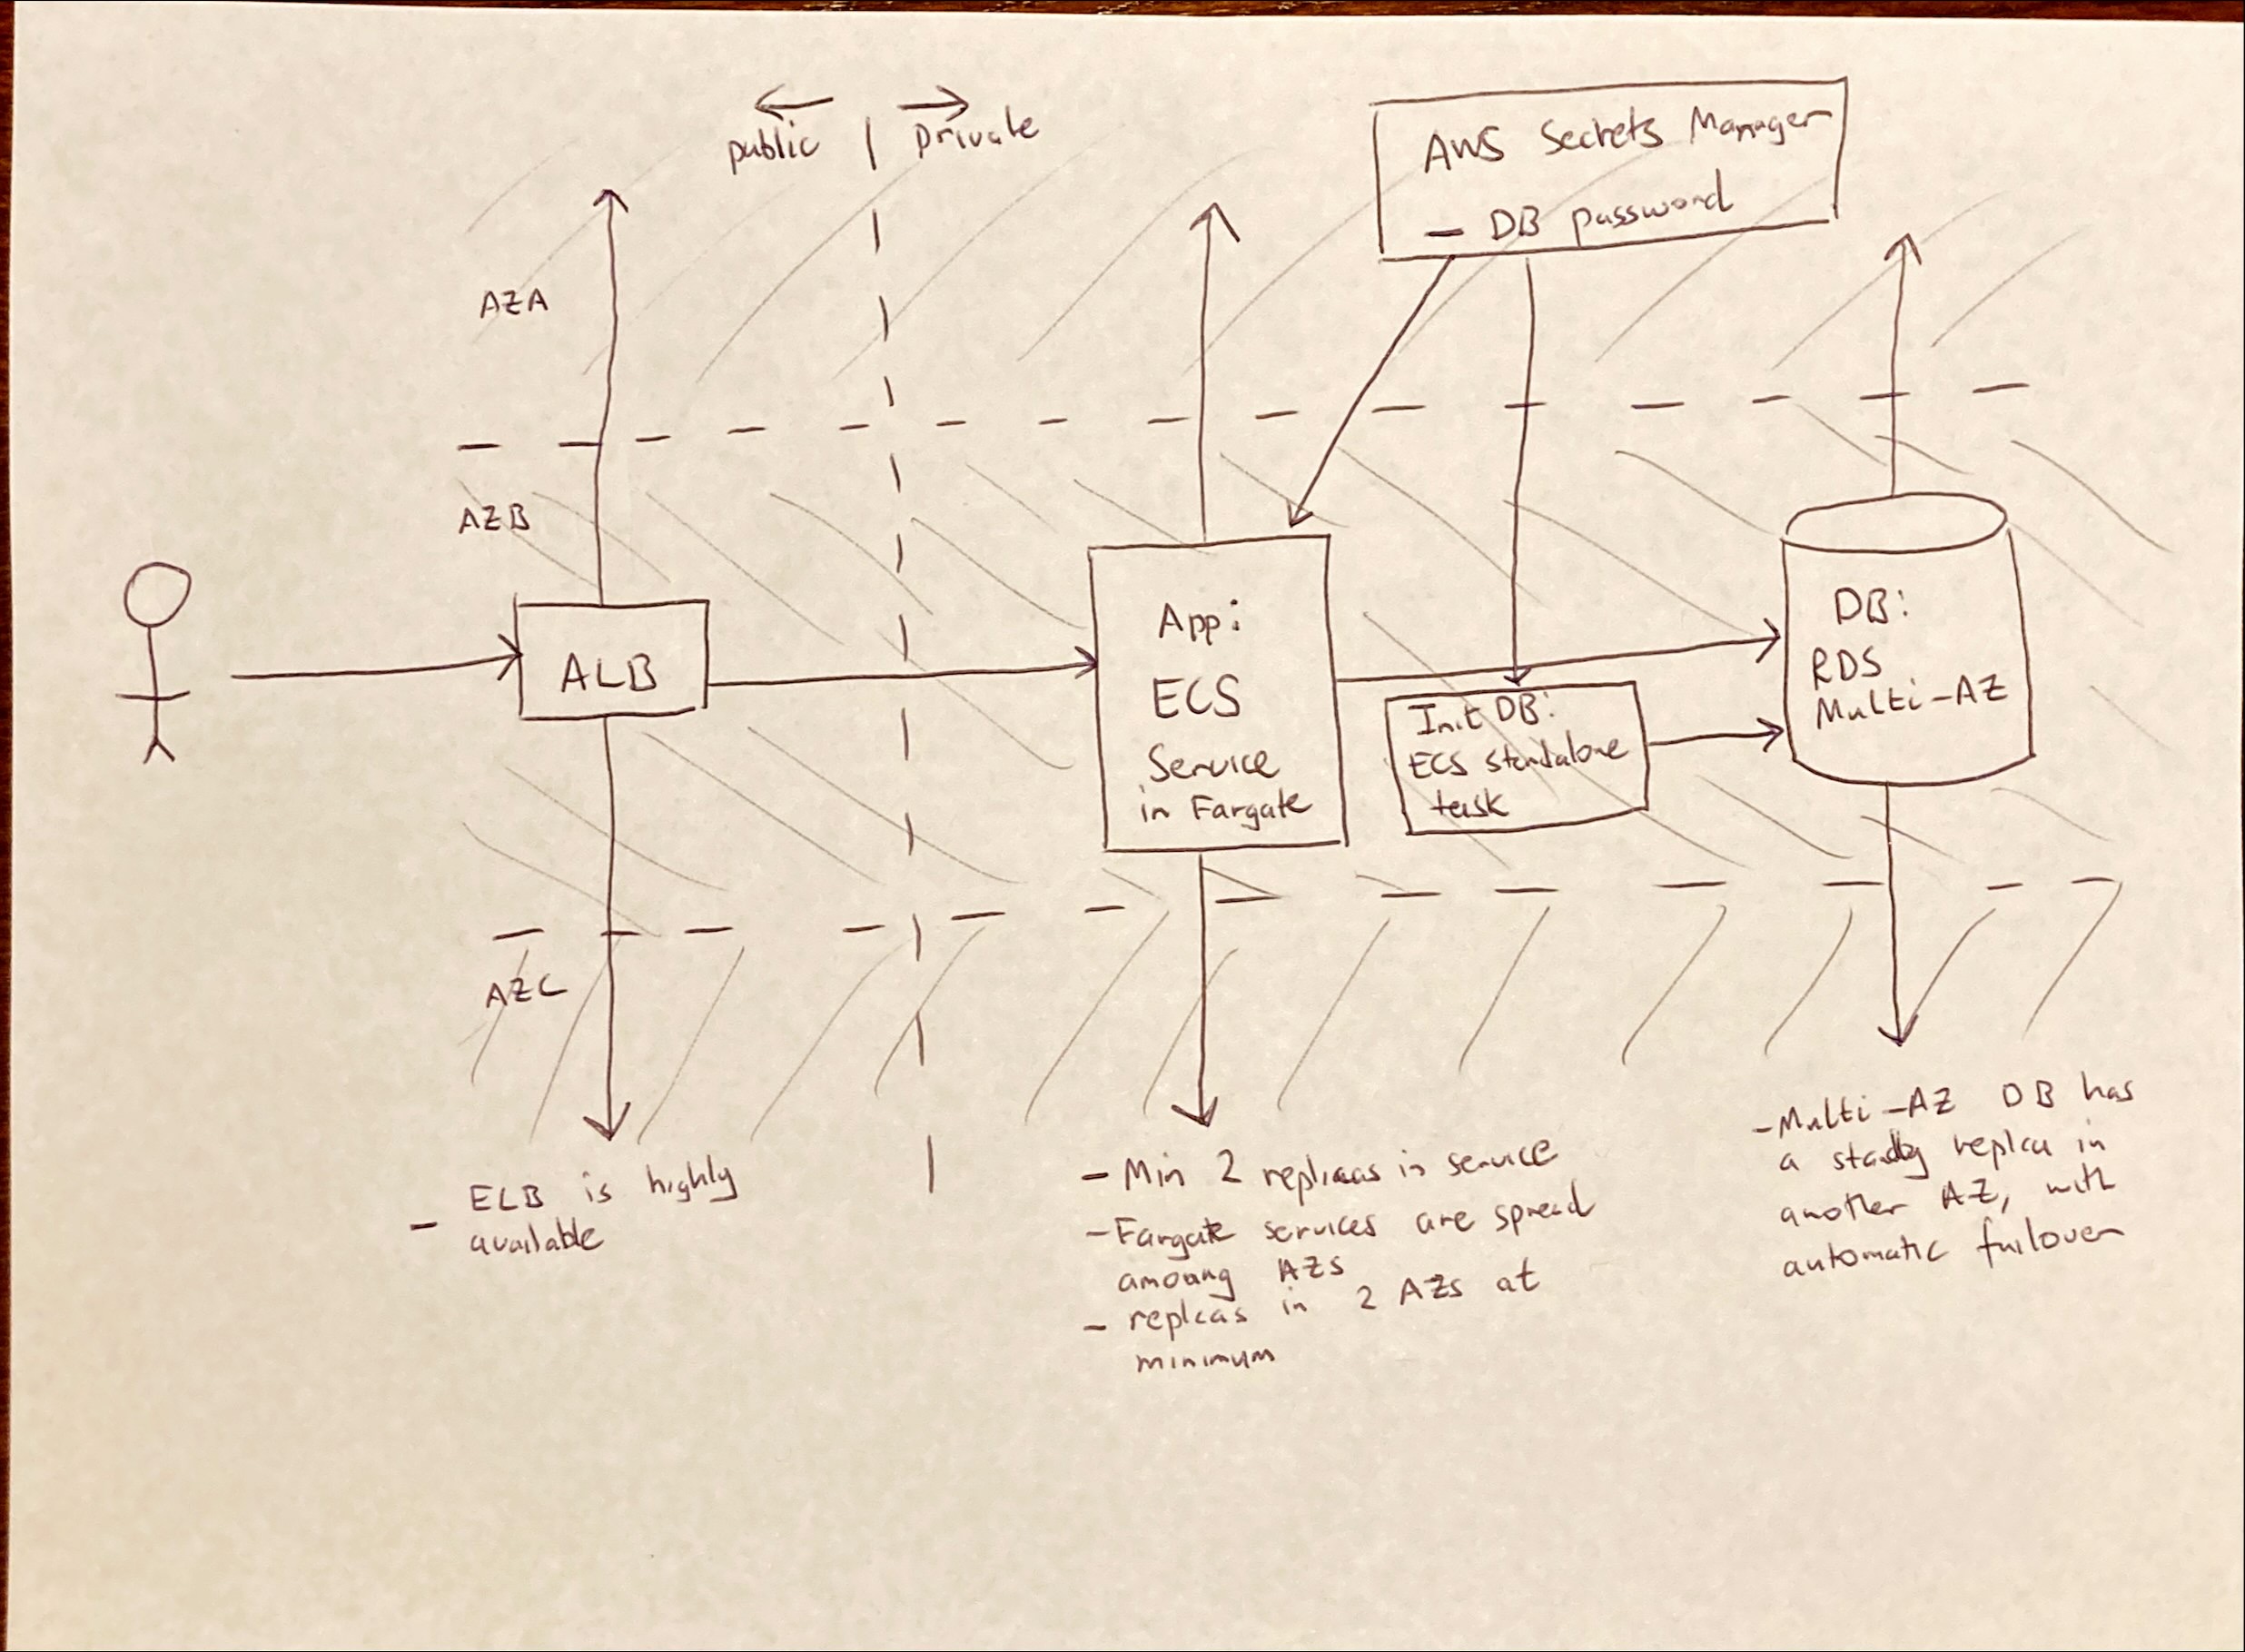 public | private
AWS Secrets Manager
- DB password
AZA
AZB
ALB
App:
ECS
Service
in Fargate
Init DB:
ECS standalone
task
DB:
RDS
Multi-AZ
AZC
- ELB is highly
available
- Min 2 replicas in service
- Fargate services are spread
amoung AZs
- replcas in 2 AZs at
minimum
- Multi-AZ DB has
a standby replca in
another AZ, with
automatic failover